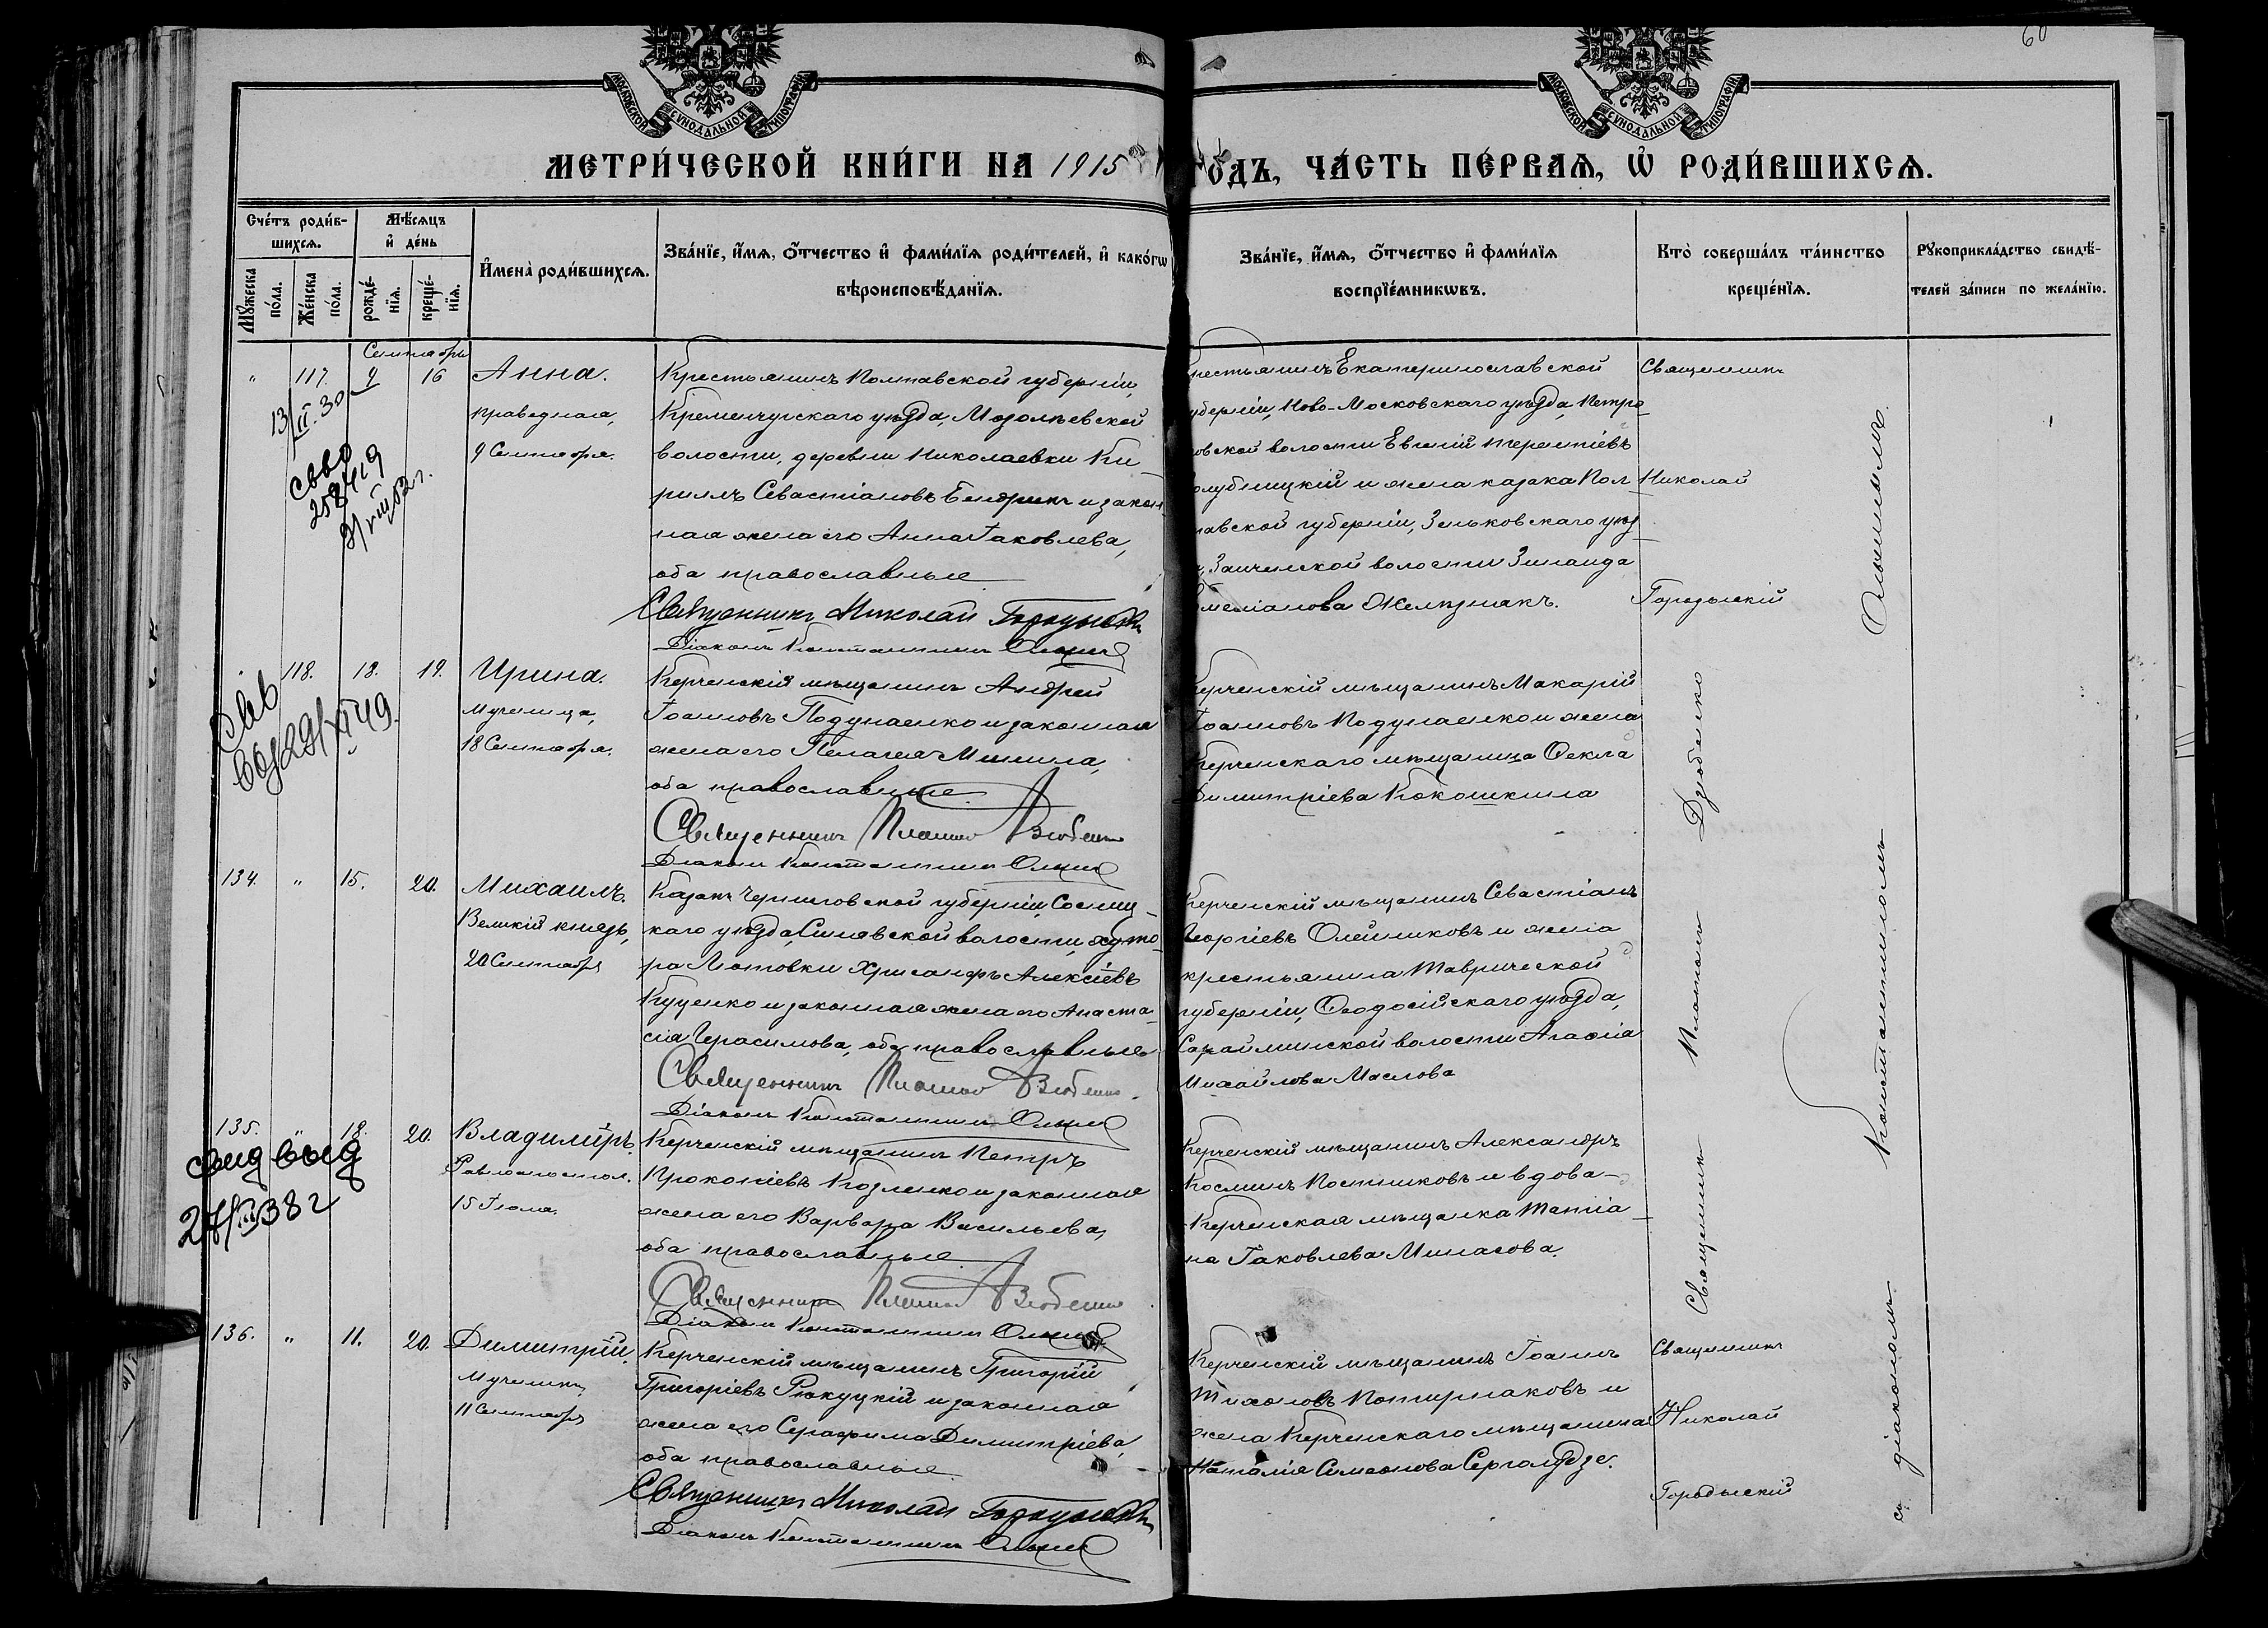 60
МОСКОВСКОЙ СѴНОДАЛЬНОЙ ТИПОГРАФІИ
МОСКОВСКОЙ СѴНОДАЛЬНОЙ ТИПОГРАФІИ
МЕТРИ́ЧЕСКОЙ КНИ́ГИ НА 1915 ГО́ДЪ, ЧА́СТЬ ПЕ́РВАѦ, Ѡ҆ РОДИ́ВШИХСѦ.
Сче́тъ роди́в-
шихсѧ.
Мꙋ́жеска по́ла.
Же́нска по́ла.
Мѣ́сѧцъ
и҆ де́нь
рожде́нїѧ.
креще́нїѧ.
И҆мена̀ роди́вшихсѧ.
Зва́нїе, и҆́мѧ, ѻ҆́тчество и҆ фами́лїѧ роди́телей, и҆ како́гѡ
вѣроисповѣ́данїѧ.
Зва́нїе, и҆́мѧ, ѻ҆́тчество и҆ фами́лїѧ
воспрїе́мникѡвъ.
Кто̀ соверша́лъ та́инство
креще́нїѧ.
Рꙋкоприкла́дство свидѣ́-
телей за́писи по жела́нїю.
Сентябрь
" 117. 9 16 Анна.
праведная,
9 Сентября.
Крестьянинъ Полтавской губерніи,
Кременчугскаго уѣзда,
волости, деревни Николаевки Ки-
риллъ Севастіановъ и закон
ная жена его Анна Іаковлева,
оба православные
Священникъ Николай Городынскій
Діаконъ Константинъ
рестьянинъ Екатеринославской
уберніи, Ново-Московскаго уѣзда, Петро
овской волости Евгеній Терентіевъ
олубницкій и жена казака Пол-
тавской губерніи, Зеньковскаго уѣз-
волости Зинаида
меліанова Желѣзнакъ.
Священникъ
Николай
Городынскій
118. 18. 19. Ирина.
Мученица,
18 Сентября.
Керченскій мѣщанинъ Андрей
Іоанновъ Подунаенко и законная
жена его Пелагея Минина,
оба православные.
Священникъ Платонъ Дзюбенко
Діаконъ Константинъ
Керченскій мѣщанинъ Макарій
Іоанновъ Подунаенко и жена
Керченскаго мѣщанина Ѳекла
Димитріева Кокошкина
134. " 15. 20. Михаилъ.
Великій князь,
20 Сентября
Казакъ Черниговской губерніи, Сосниц-
каго уѣзда, Синявской волости, хуто-
ра Лютовки Хрисанфъ Алексіевъ
Куценко и законная жена его Анаста-
сія Герасимова, оба православные
Священникъ Платонъ Дзюбенко.
Діаконъ Константинъ
Керченскій мѣщанинъ Севастіанъ
Георгіевъ Олейниковъ и жена
крестьянина Таврической
губерніи, Ѳеодосійскаго уѣзда,
Сарайминской волости Агафія
Михайлова Маслова
135. " 18. 20. Владиміръ.
Равноапостол.
15 Іюля.
Керченскій мѣщанинъ Петръ
Прокопіевъ Козленко и законная
жена его Варвара Васильева,
оба православные.
Священникъ Платонъ Дзюбенко
Діаконъ Константинъ
Керченскій мѣщанинъ Александръ
Косминъ Постниковъ и вдова-
Керченская мѣщанка Татіа-
на Іаковлева Минасова.
Священникъ Платонъ Дзюбенко
136. " 11. 20. Димитрій.
Мученикъ,
11 Сентября
Керченскій мѣщанинъ Григорій
Григоріевъ и законная
жена его Серафима Димитріева,
оба православные.
Священникъ Николай Городынскій
Діаконъ Константинъ
Керченскій мѣщанинъ Іоаннъ
Тихоновъ и
жена Керченскаго мѣщанина
Наталія Симеонова
Священникъ
Николай
Городынскій
съ діакономъ Константиномъ